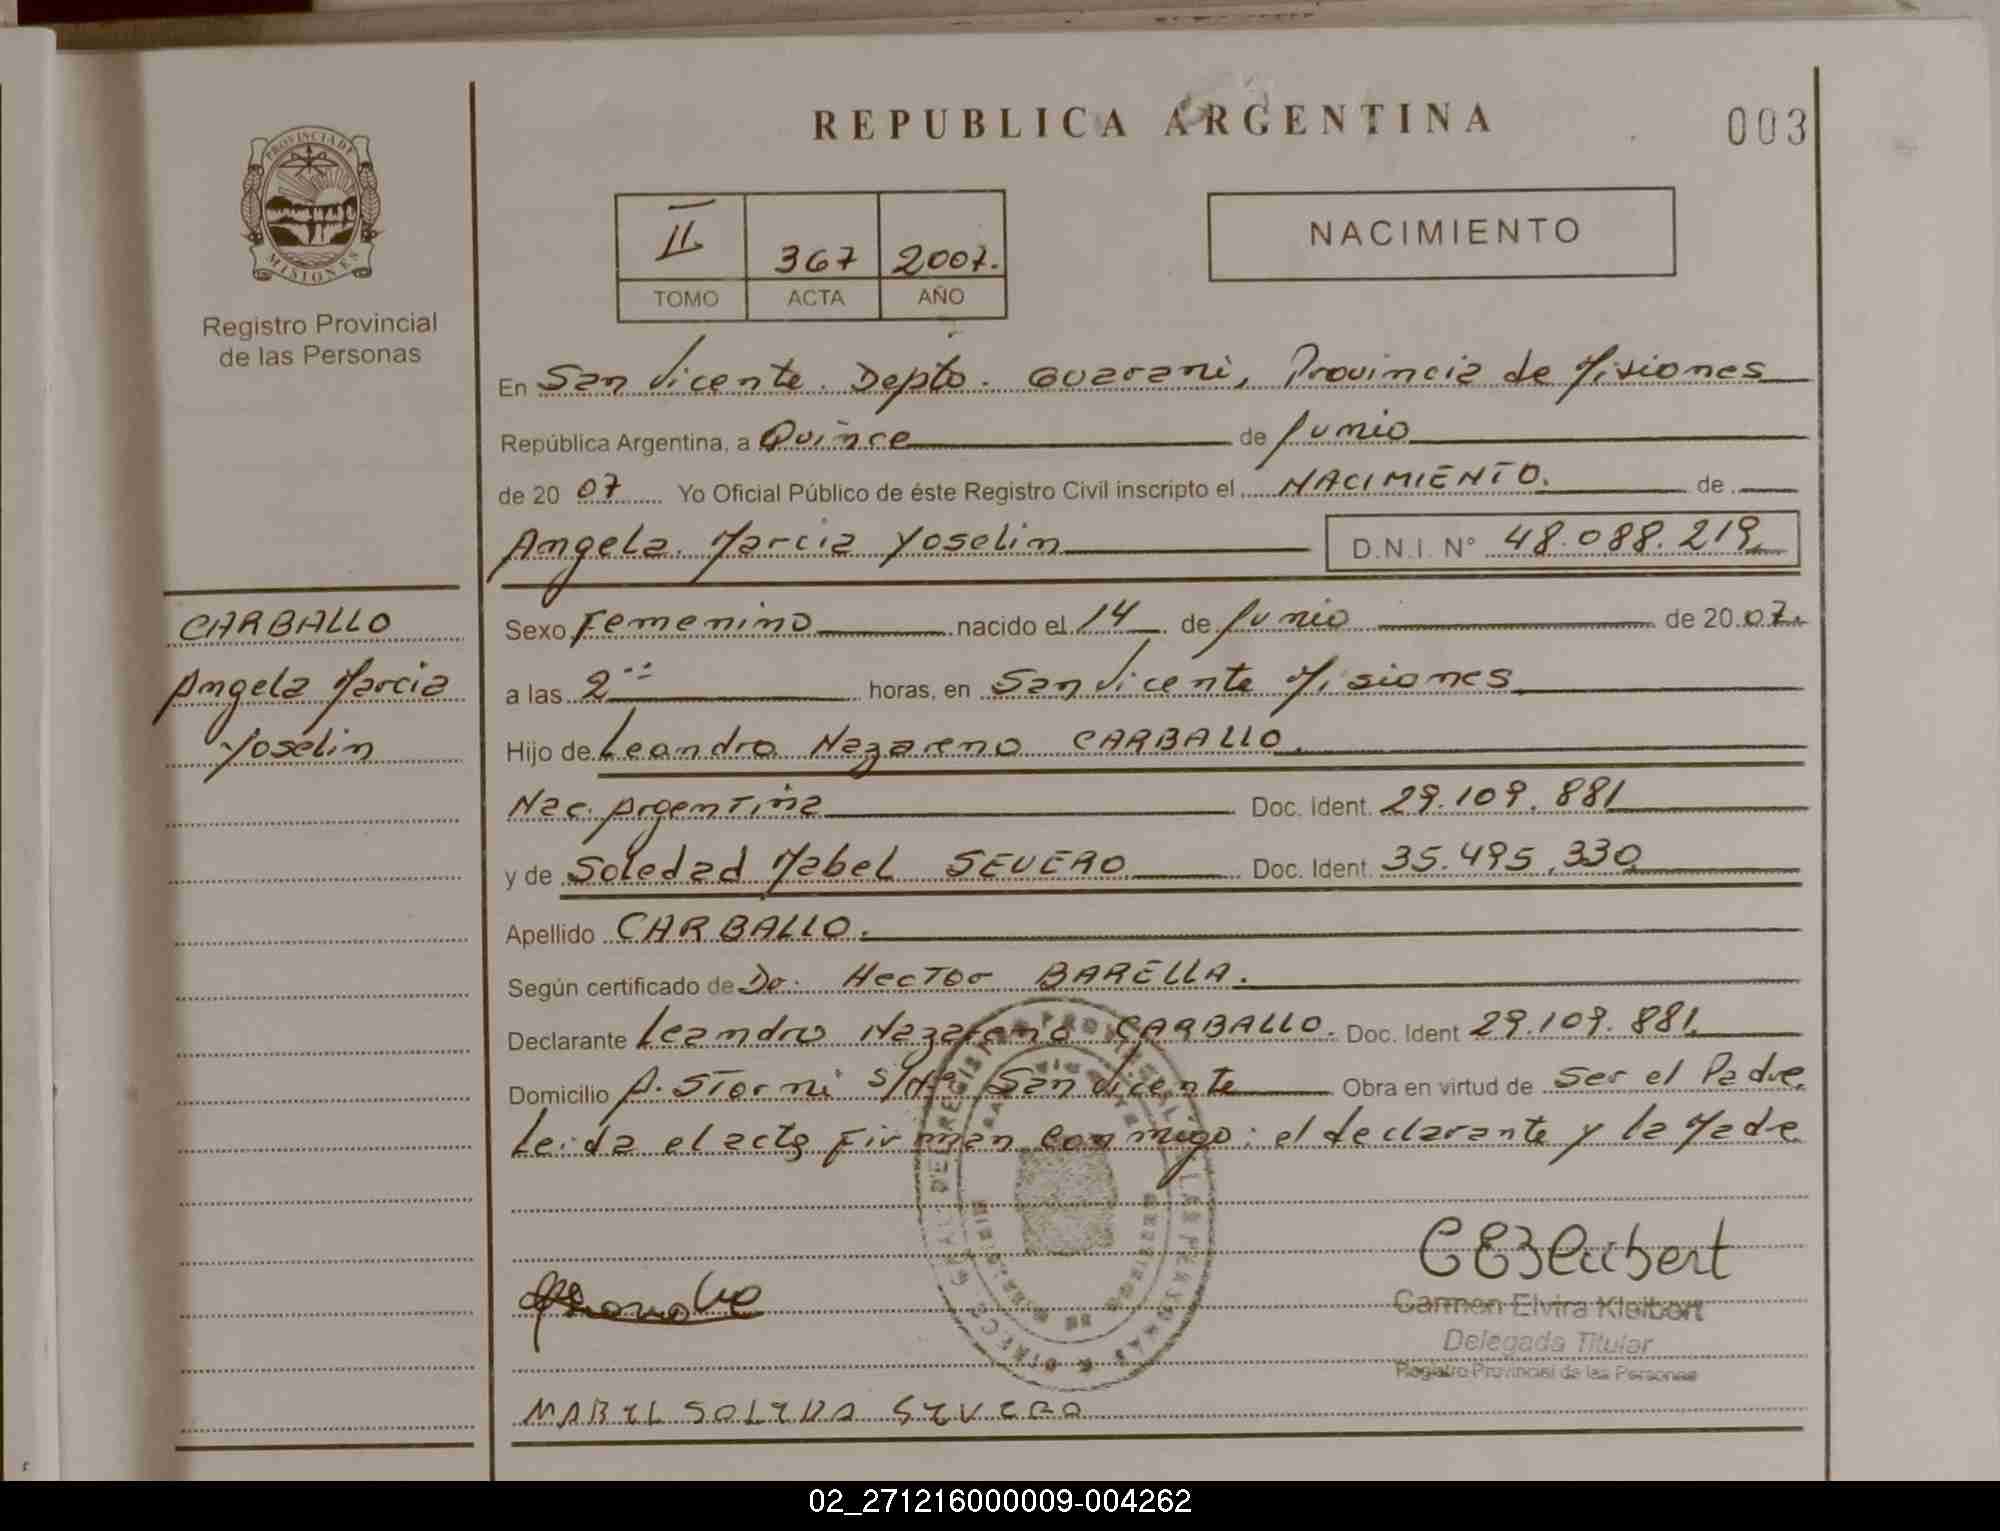 REPUBLICA ARGENTINA
003
PROVINCIA DE
MISIONES
Registro Provincial
de las Personas
II 367 2007.
TOMO ACTA AÑO
NACIMIENTO
En San Vicente. Depto. Guarani, Provincia de Misiones
República Argentina, a Quince de Junio
de 20 07 Yo Oficial Público de éste Registro Civil inscripto el NACIMIENTO. de
Angela Marcia Yoselin D.N.I. N° 48.088.219
CARBALLO
Angela Marcia
Yoselin
Sexo Femenino nacido el 14 de Junio de 20 07.
a las 2 horas, en San Vicente Misiones
Hijo de Leandro Nazareno CARBALLO.
Nac. Argentina Doc. Ident. 29.109.881
y de Soledad Mabel SEVERO Doc. Ident. 35.495.330
Apellido CARBALLO.
Según certificado de Dr. Hector BARELLA.
Declarante Leandro Nazareno CARBALLO. Doc. Ident 29.109.881
Domicilio A. Storni S/Nº San Vicente Obra en virtud de Ser el Padre.
Leida el acta Firman Conmigo: el declarante y la Madre
Carmen Elvira Kleibert
Delegada Titular
Registro Provincial de las Personas
MABEL SOLEDA SEVERO
02_271216000009-004262